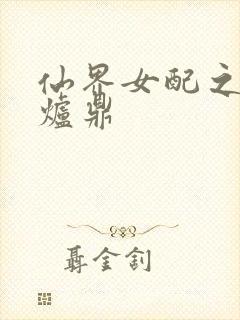 仙界女配之
爐鼎
聶金釗